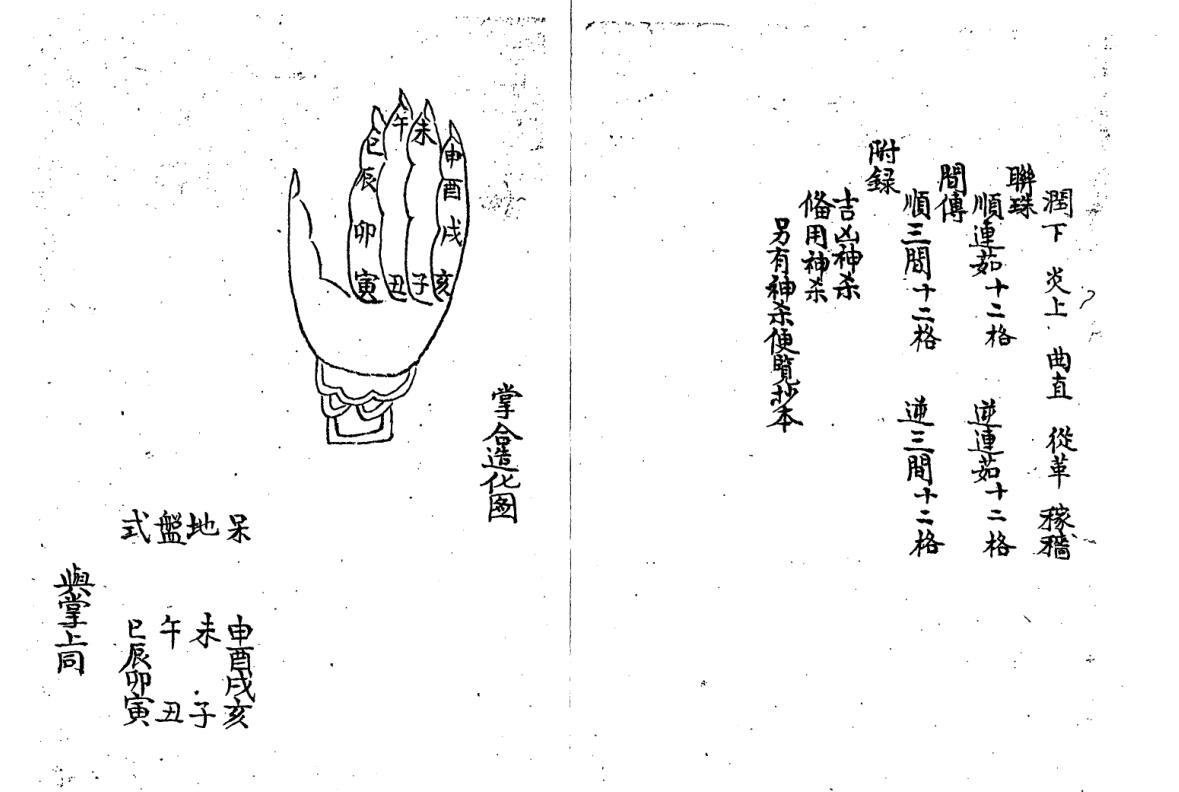 潤下 炎上 曲直 從革 稼穡
聯珠
順連茹十二格 逆連茹十二格
間傳
順三間十二格 逆三間十二格
附録
吉凶神杀
俻用神杀
另有神杀便覽抄本
掌合造化图
巳 午 未 申
辰 酉
卯 戌
寅 丑 子 亥
呆地盤式
申酉戌亥
未 子
午 丑
巳辰卯寅
與掌上同